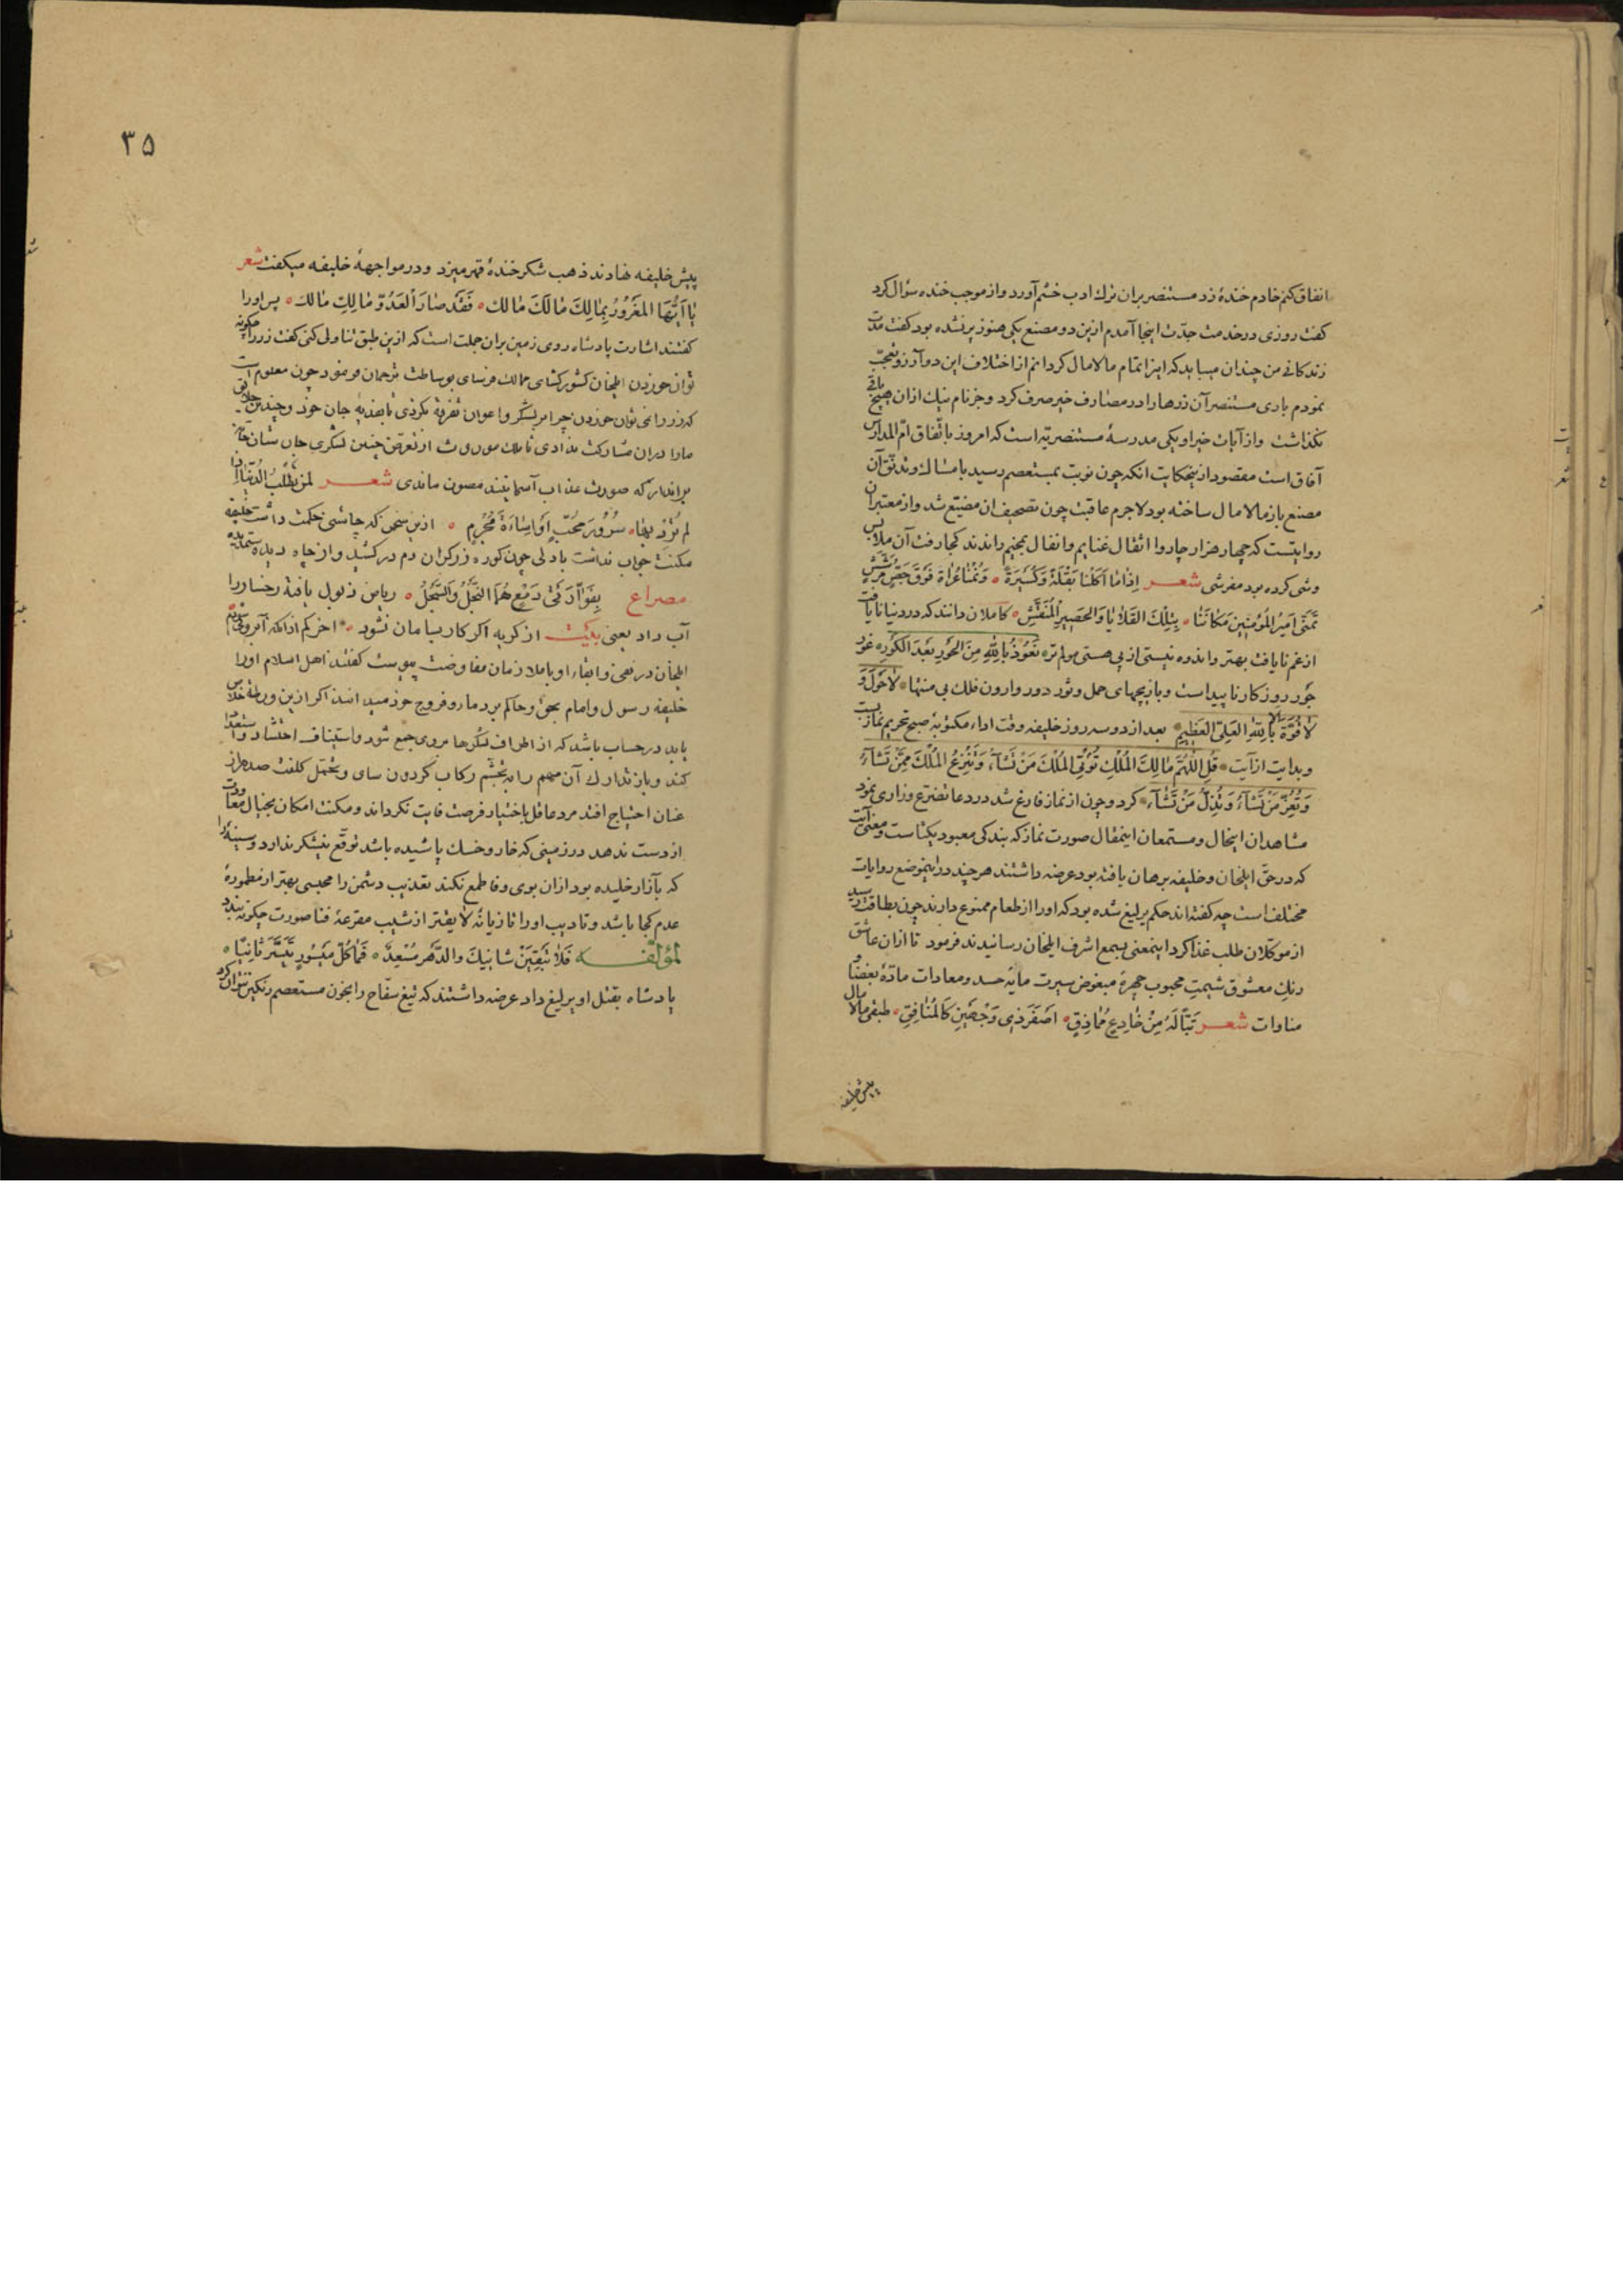 انفاق کنم خادم خندهٔ زد مستنصر بران ترك ادب خشم آورد و از موجب خنده سؤال کرد
کفت روزی در خدمت جدّت اینجا آمدم ازین دو مصنع یکی هنوز پر نشده بود کفت مدّت
زندکانی من چندان میباید که اینرا تمام مالامال کردانم از اختلاف این دو آرزو تعجّب
نمودم باری مستنصر آن زرها را در مصارف خیر صرف کرد و جز نام نیك ازان هیچ باقی
نکذاشت و از آیات خیر او یکی مدرسهٔ مستنصریّه است که امروز باتّفاق امّ المدارس
آفاق است مقصود ازینحکایت انکه چون نوبت بمستعصم رسید بامساك و تدنّق آن
مصنع باز مالامال ساخته بود لاجرم عاقبت چون تصحیف ان مضیّع شد و از معتبران
روایتست که چهار هزار چاروا اثقال غنایم و انفال بمخیم راندند کجا رفت آن ملابس
وشی کرده بود مفرشی شعر اذا ما اکلنا بقلة و کسیرة ٥ و نمنا عراة فوق جصّ مرشش
تمنّی امیر المؤمنین مکاننا ٥ بتلك القلایا و الحصیر المنقّش ٥ کاملان دانند که در دنیا نایافت
از غم نایافت بهتر و اندوه نیستی از بی هستی مولم تر ٥ نعوذ بالله من الحور بعد الکور ٥ غور
جور روزکار ناپیداست و بازیچهای حمل و ثور دور وارون فلك بی منتها ٥ لا حول و
لا قوّة الّا بالله العلیّ العظیم ٥ بعد از دو سه روز خلیفه وقت اداء مکتوبهٔ صبح تحریم نماز بست
و بدایت از آیت ٥ قل اللّهم مالك الملك تؤتی الملك من تشآء و تنزع الملك ممّن تشآء
و تعزّ من تشآء و تذلّ من تشآء ٥ کرد و چون از نماز فارغ شد در دعا تضرّع و زاری نمود
مشاهدان اینحال و مستمعان اینمقال صورت نماز که بندکی معبود یکتاست و معنی آیت
که در حقّ ایلخان و خلیفه برهان یافته بود عرضه داشتند هر چند در اینموضع روایات
مختلف است چه کفته اند حکم یرلیغ شده بود که او را از طعام ممنوع دارند چون بطاقت رسید
از موکّلان طلب غذا کرد اینمعنی بسمع اشرف ایلخان رسانیدند فرمود تا ازان عاشق
رنك معشوق شیمت محبوب چهرهٔ مبغوض سیرت مایهٔ حسد و معادات مادّهٔ بغضا و
مناوات شعر تبّا له من خادع مماذق ٥ اصفر ذی وجهین کالمنافق ٥ طبقی مالامال
پیش خلیفه
٣٥
پیش خلیفه نهادند ذهب شکر خندهٔ قهر میزد و در مواجههٔ خلیفه میکفت شعر
یا ایّها المغرور بمالك مالك مالك ٥ فقد صار العدوّ مالك مالك ٥ پس او را
کفتند اشارت پادشاه روی زمین بران جملت است که ازین طبق تناولی کنی کفت زر را چکونه
توان خوردن ایلخان کشور کشای ممالك فرسای بوساطت ترجمان فرمود چون معلوم است
که زر را نمی توان خوردن چرا بر لشکر و اعوان تفرقه نکردی تا بفدیهٔ جان خود و چندین خلایق
ما را دران مشارکت ندادی تا ملك موروث از تعرّض چنین لشکری جان ستان
بر انداز که صورت عذاب آسمانیند مصون ماندی شعر لمن تطلب الدّنیا اذا
لم ترد بها ٥ سرور محبّ او اساءة مجرم ٥ ازین سخن که چاشنی حکمت داشت خلیفه
مکنت جواب نداشت با دلی چون کوره زرکران دم در کشید و از چاه دیده ستمدیده
مصراع بفؤاد فی دمع هما التجّل و السّجل ٥ ریاض ذبول یافتهٔ رخسار را
آب داد یعنی بکیت از کریه اکر کار بسامان نشود ٥ اخر کم ازانکه آبرویی بزنم
ایلخان در نفی و ابقاء او با ملازمان مفاوضت پیوست کفتند اهل اسلام او را
خلیفه رسول و امام بحق و حاکم بر دماء و فروج خود میدانند اکر ازین ورطه خلاص
یابد در حساب باشد که از اطراف لشکرها بر وی جمع شود و استیناف احتشاد و استعداد
کند و باز تدارك آن مهم را بتجشّم رکاب کردون سای و تحمّل کلفت صد هزار
عنان احتیاج افتد مرد عاقل باختیار فرصت فایت نکرداند و مکنت امکان بخیال معاودت
از دست ندهد در زمینی که خار و خسك پاشیده باشد توقّع نیشکر ندارد و سینهٔ را
که بآزار خلیده بود ازان بوی وفا طمع نکند تعذیب دشمن را محبسی بهتر از مطمورهٔ
عدم کجا باشد و تادیب او را تازیانهٔ لا یفتر از شیب مقرعهٔ فنا صورت چکونه بندد
لمؤلّفه فلا تبقین شانیك و الدّهر مسعد ٥ فما کلّ میسور تیسّر ثانیا ٥
پادشاه بقتل او یرلیغ داد عرضه داشتند که تیغ سفّاح را بخون مستعصم رنکین نتوان کرد